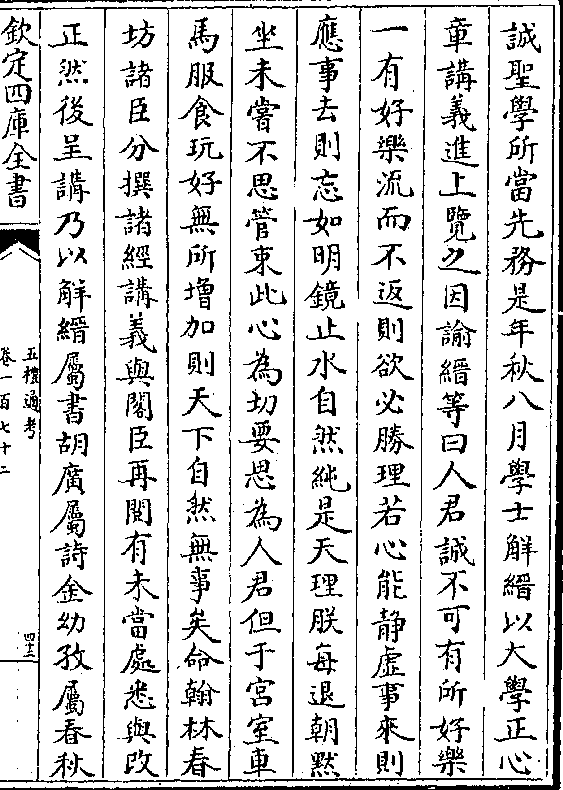 誠聖學所當先務是年秋八月學士解縉以大學正心
章講義進上覽之因諭縉等曰人君誠不可有所好樂
一有好樂流而不返則欲必勝理若心能静虚事來則
應事去則忘如明鏡止水自然純是天理朕每退朝黙
坐未嘗不思管束此心為切要思為人君但于宫室車
馬服食玩好無所增加則天下自然無事矣命翰林春
坊諸臣分撰諸經講義與閣臣再閲有未當處悉與改
正然後呈講乃以解縉屬書胡廣屬詩金幼孜屬春秋
欽定四庫全書
五禮通考
卷一百七十二
四十三